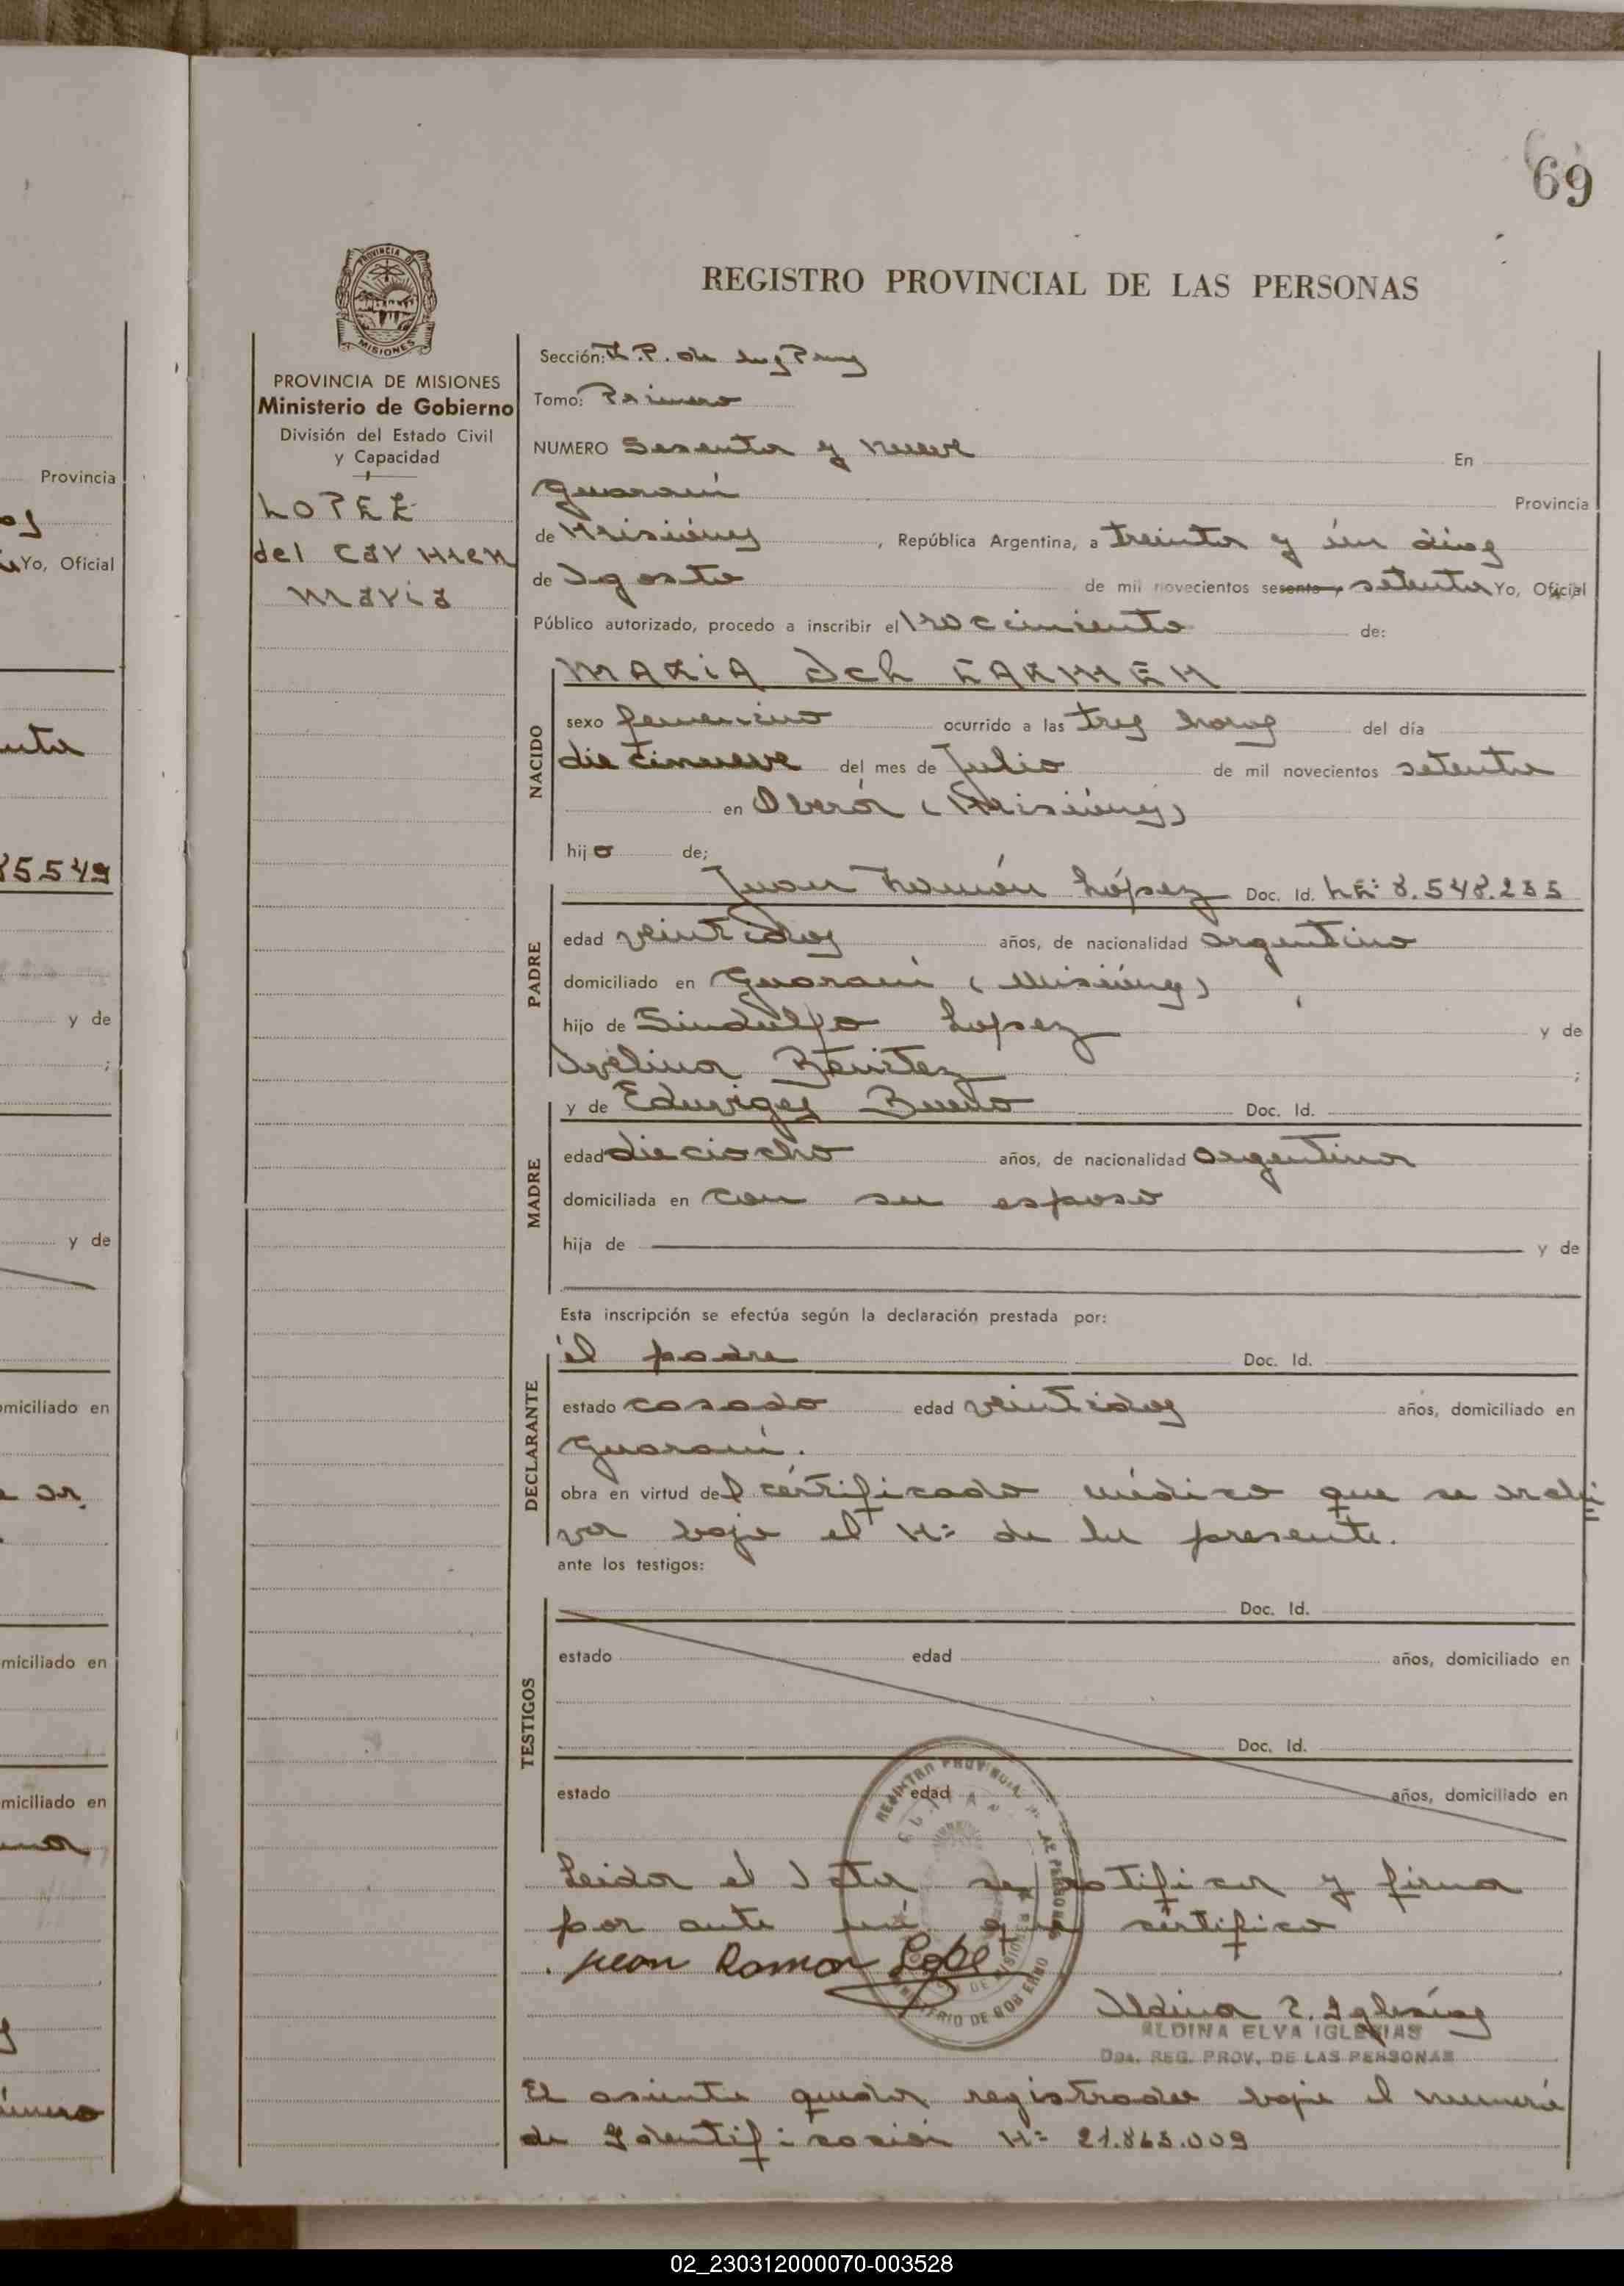 69
REGISTRO PROVINCIAL DE LAS PERSONAS
PROVINCIA DE MISIONES
PROVINCIA DE MISIONES
Ministerio de Gobierno
División del Estado Civil
y Capacidad
LOPEZ
del Carmen
Maria
Sección: R.P. de las
Tomo: Primero
NUMERO Sesenta y nueve En
Guaraní Provincia
de Misiones, República Argentina, a treinta y un días
de Agosto de mil novecientos sesenta, setenta Yo, Oficial
Público autorizado, procedo a inscribir el Nacimiento de:
MARIA del CARMEN
NACIDO
sexo femenino ocurrido a las tres horas del día
diecinueve del mes de Julio de mil novecientos setenta
en Oberá (Misiones)
hija de;
PADRE
Juan Ramón López Doc. Id. LE: 8.548.255
edad veintidos años, de nacionalidad argentino
domiciliado en Guaraní (Misiones)
hijo de Sindulfo Lopez y de
Avelina Benitez ;
MADRE
y de Eduviges Bueno Doc. Id.
edad dieciocho años, de nacionalidad argentina
domiciliada en con su esposo
hija de y de
Esta inscripción se efectúa según la declaración prestada por:
DECLARANTE
él padre Doc. Id.
estado casado edad veintidos años, domiciliado en
Guaraní.
obra en virtud del certificado médico que se archi
va bajo el Nº de la presente.
ante los testigos:
TESTIGOS
Doc. Id.
estado edad años, domiciliado en
Doc. Id.
estado edad años, domiciliado en
Leida el Acta se ratifica y firma
por ante mí que certifico
Juan Ramon Lope
REGISTRO PROVINCIAL DE PERSONAS
MINISTERIO DE GOBIERNO
Aldina E. Iglesias
ALDINA ELVA IGLESIAS
REG. PROV. DE LAS PERSONAS
El asiento queda registrado bajo el numero
de Identificación Nº 21.863.009
Provincia
Yo, Oficial
85549
y de
;
y de
omiciliado en
miciliado en
miciliado en
02_230312000070-003528